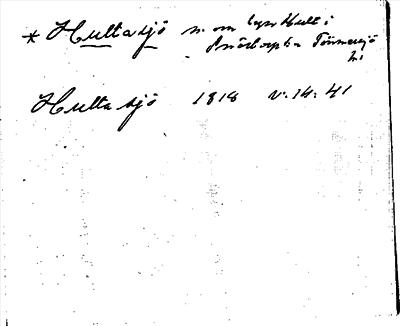 * Hultasjö n. om byn Hult i
Snöstorps sn Tönnersjö
hd
Hultasjö 1818 V: 14: 41